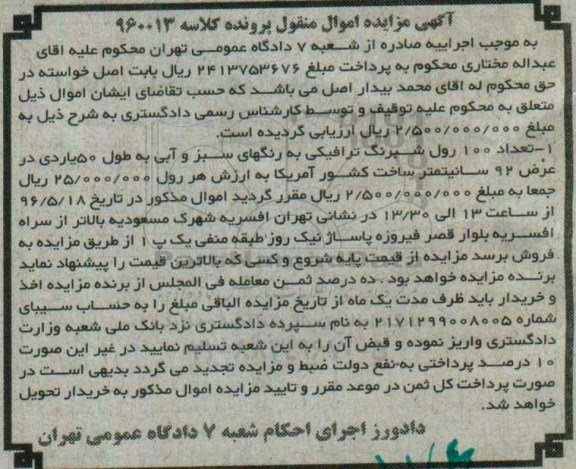 آگهی مزایده اموال منقول پرونده کلاسه ۹۶۰۰۱۳
به موجب اجراییه صادره از شعبه ۷ دادگاه عمومی تهران محکوم علیه اقای
عبداله مختاری محکوم به پرداخت مبلغ ۲۴۱۳۷۵۳۶۷۶ ریال بابت اصل خواسته در
حق محکوم له اقای محمد بیدار اصل می باشد که حسب تقاضای ایشان اموال ذیل
متعلق به محکوم علیه توقیف و توسط کارشناس رسمی دادگستری به شرح ذیل به
مبلغ ۲/۵۰۰/۰۰۰/۰۰۰ ریال ارزیابی گردیده است.
۱-تعداد ۱۰۰ رول شبرنگ ترافیکی به رنگهای سبز و آبی به طول ۵۰یاردی در
عرض ۹۲ سانیتمتر ساخت کشور آمریکا به ارزش هر رول ۲۵/۰۰۰/۰۰۰ ریال
جمعا به مبلغ ۲/۵۰۰/۰۰۰/۰۰۰ ریال مقرر گردید اموال مذکور در تاریخ ۹۶/۵/۱۸
از ساعت ۱۳ الی ۱۳/۳۰ در نشانی تهران افسریه شهرک مسعودیه بالاتر از سراه
افسریه بلوار قصر فیروزه پاساژ نیک روز طبقه منفی یک پ ۱ از طریق مزایده به
فروش برسد مزایده از قیمت پایه شروع و کسی که بالاترین قیمت را پیشنهاد نماید
برنده مزایده خواهد بود. ده درصد ثمن معامله فی المجلس از برنده مزایده اخذ
و خریدار باید ظرف مدت یک ماه از تاریخ مزایده الباقی مبلغ را به حساب سیبای
شماره ۲۱۷۱۲۹۹۰۰۸۰۰۵ به نام سپرده دادگستری نزد بانک ملی شعبه وزارت
دادگستری واریز نموده و قبض آن را به این شعبه تسلیم نمایید در غیر این صورت
۱۰ درصد پرداختی به نفع دولت ضبط و مزایده تجدید می گردد بدیهی است در
صورت پرداخت کل ثمن در موعد مقرر و تایید مزایده اموال مذکور به خریدار تحویل
خواهد شد.
دادورز اجرای احکام شعبه ۷ دادگاه عمومی تهران